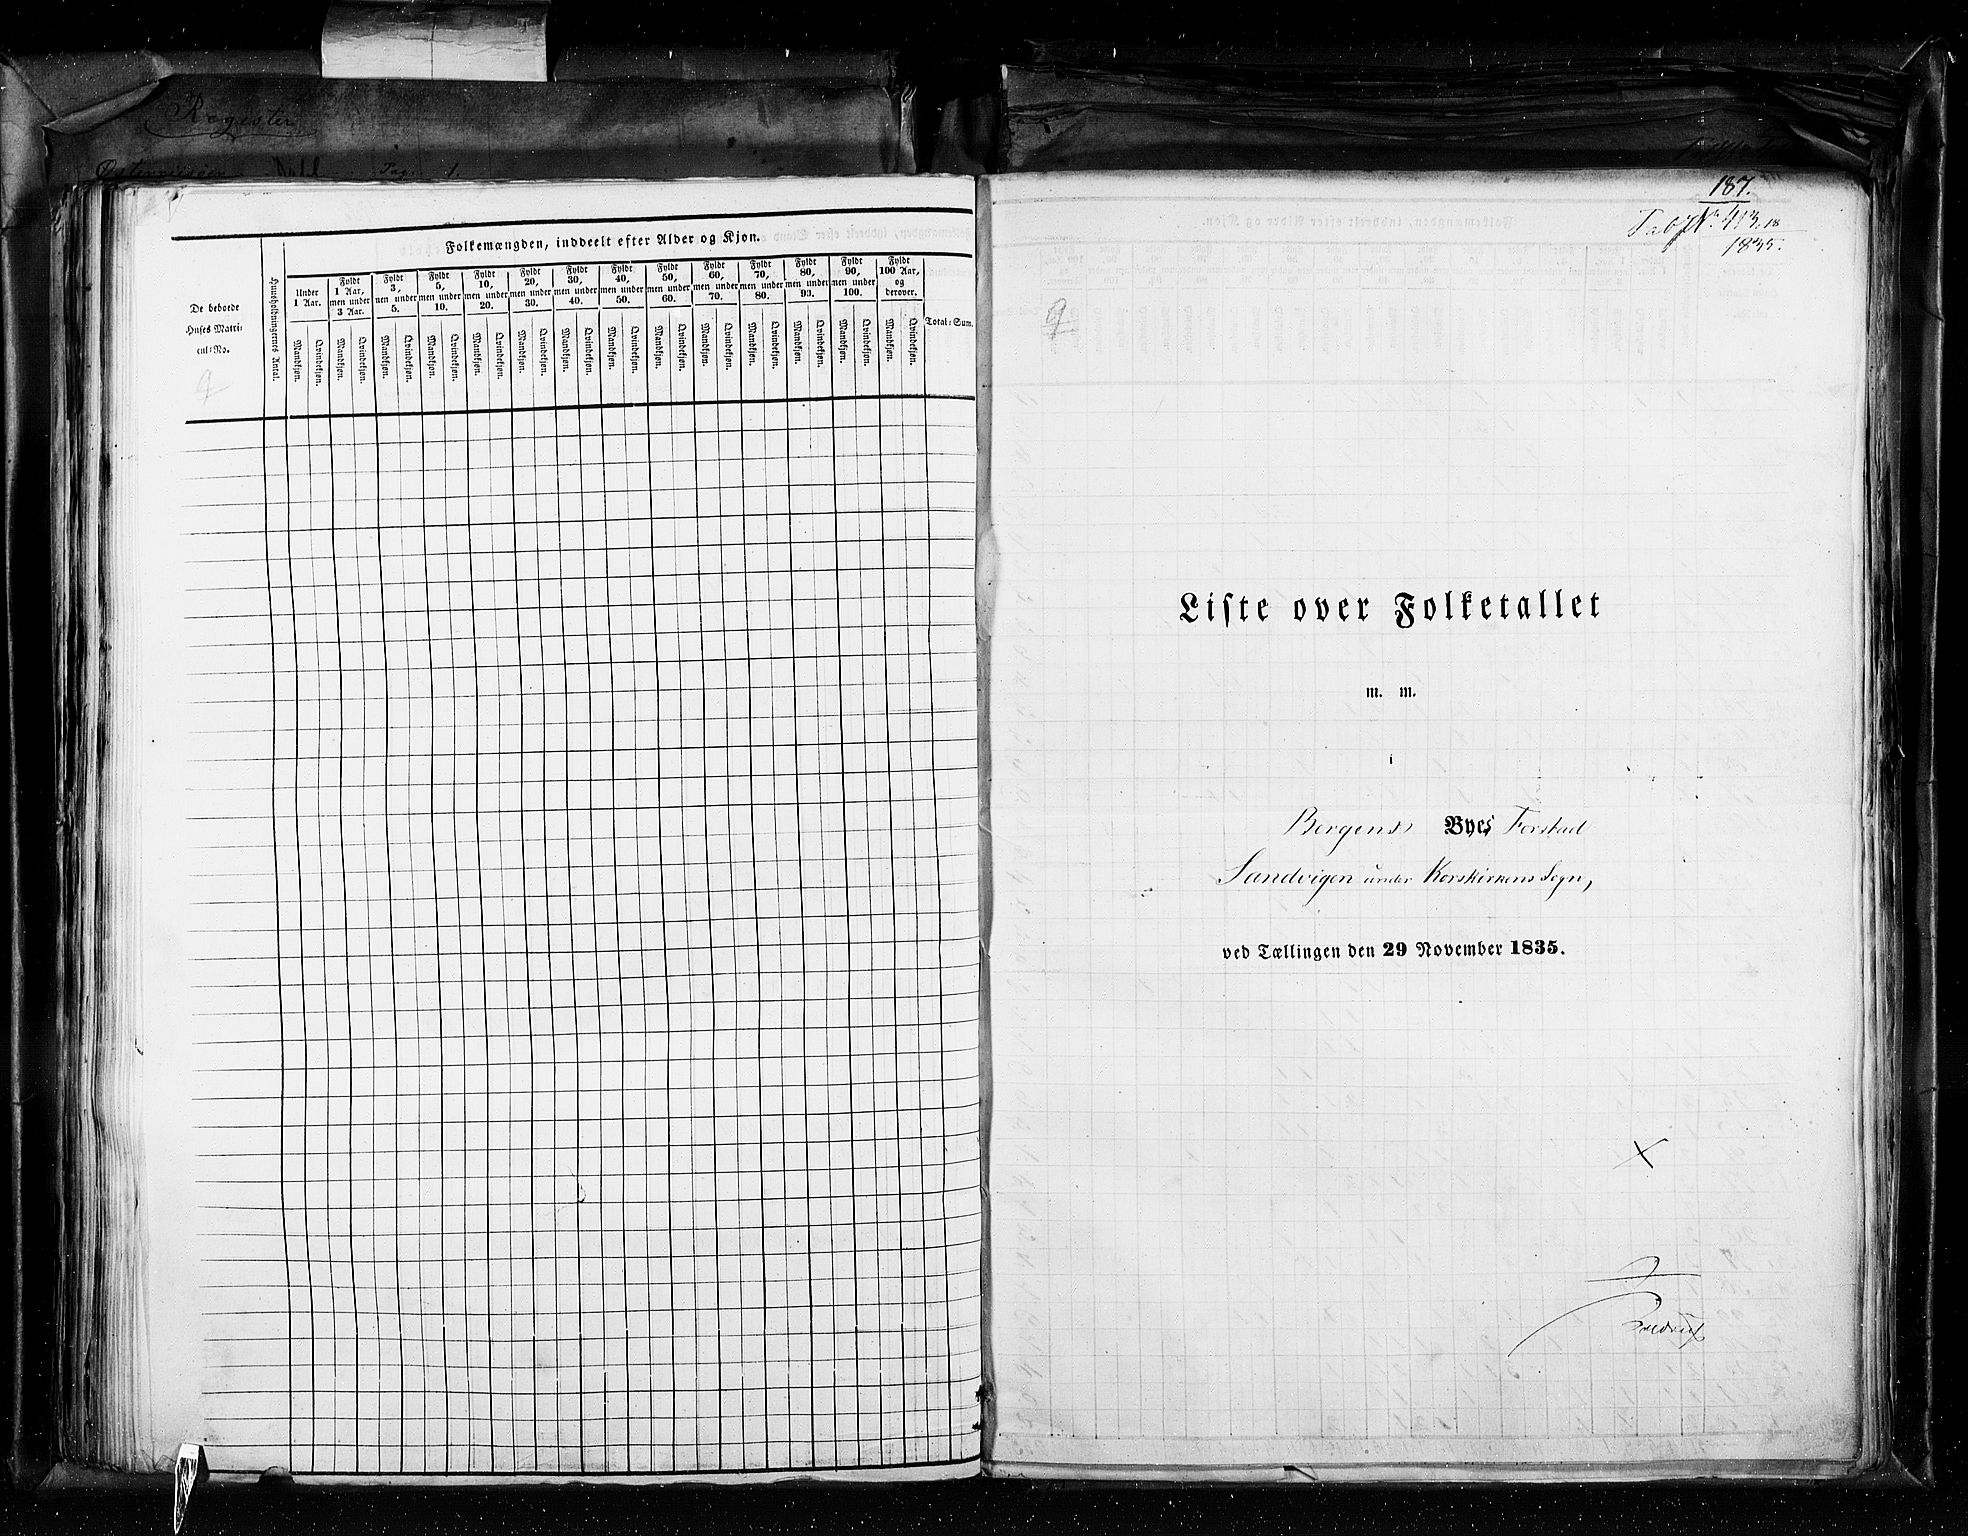 Register
Pag. 1.
Folkemængden, inddeelt efter Alder og Kjøn.
De beboede
Huses Matri-
cul-No.
Huusholdningernes Antal.
Under
1 Aar.
Fyldt
1 Aar,
men under
3 Aar.
Fyldt
3,
men under
5.
Fyldt
5,
men under
10.
Fyldt
10,
men under
20.
Fyldt
20,
men under
30.
Fyldt
30,
men under
40.
Fyldt
40,
men under
50.
Fyldt
50,
men under
60.
Fyldt
60,
men under
70.
Fyldt
70,
men under
80.
Fyldt
80,
men under
90.
Fyldt
90,
men under
100.
Fyldt
100 Aar,
og
derover.
Total-Sum.
Mandkjøn. Qvindekjøn. Mandkjøn. Qvindekjøn. Mandkjøn. Qvindekjøn. Mandkjøn. Qvindekjøn. Mandkjøn. Qvindekjøn. Mandkjøn. Qvindekjøn. Mandkjøn. Qvindekjøn. Mandkjøn. Qvindekjøn. Mandkjøn. Qvindekjøn. Mandkjøn. Qvindekjøn. Mandkjøn. Qvindekjøn. Mandkjøn. Qvindekjøn. Mandkjøn. Qvindekjøn. Mandkjøn. Qvindekjøn.
9
187.
Tab No 413, 18
1835.
9
Liste over Folketallet
m. m.
i
Bergens Byes Forstad
Sandvigen under Korskirkens Sogn,
ved Tællingen den 29 November 1835.